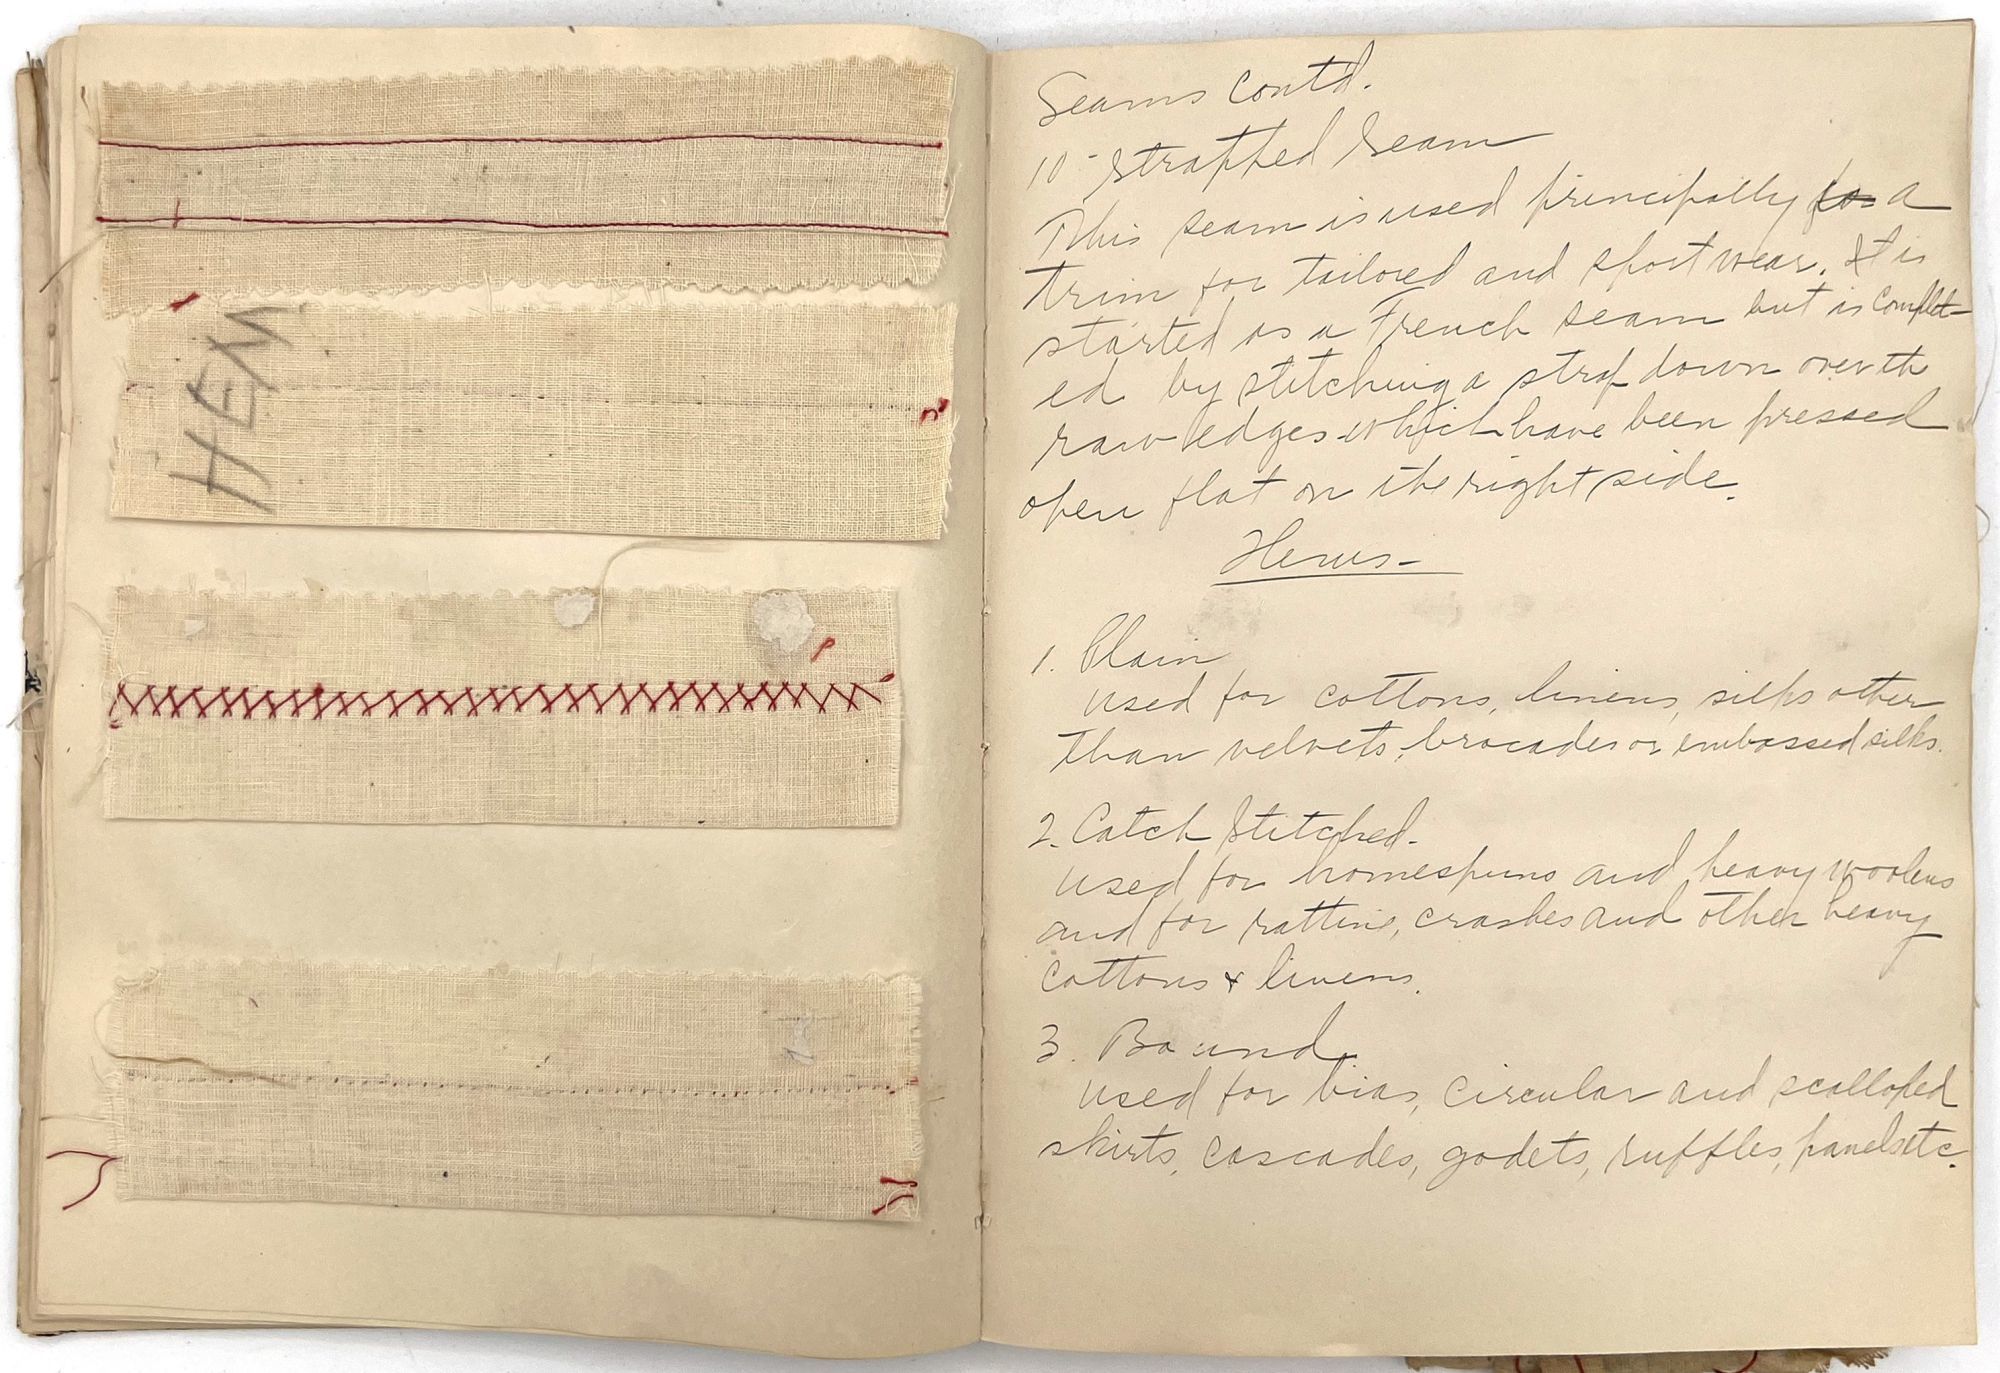 HEM
Seams Cont'd.
10- Strapped Seam
This seam is used principally for a
trim for tailored and sport wear. It is
started as a French seam but is complet-
ed by stitching a strap down over the
raw edges which have been pressed
open flat on the right side.
Hems-
1. Plain
Used for cottons, linens, silks other
than velvets, brocades or embossed silks.
2. Catch Stitched.
Used for homespuns and heavy woolens
and for rattine, crashes and other heavy
cottons & linens.
3. Bound.
Used for bias, circular and scalloped
skirts, cascades, godets, ruffles, panels etc.